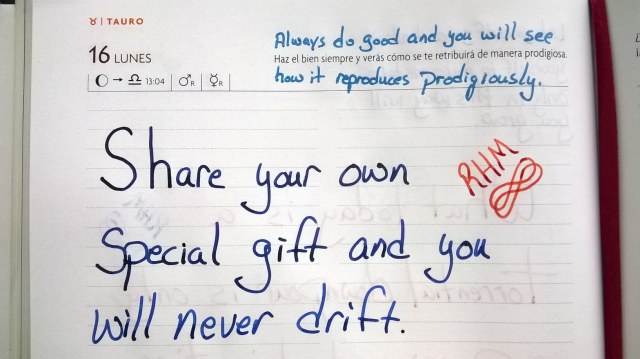 ♉ | TAURO
16 LUNES
Always do good and you will see
Haz el bien siempre y verás cómo se te retribuirá de manera prodigiosa.
how it reproduces prodigiously.
☾ → ♎ 13:04 | ♂R | ☿R
Share your own
RHM
Special gift and you
will never drift.